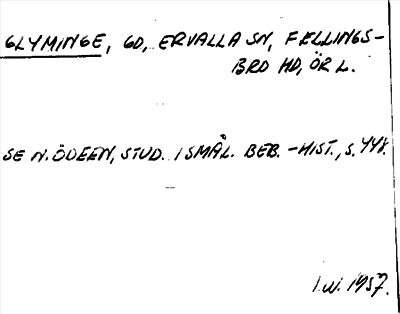 GLYMINGE, GD, ERVALLA SN, FELLINGS-
BRO HD, ÖR L.
SE N. ÖDEEN, STUD. I SMÅL. BEB.-HIST., S. 448.
I.W. 1957.